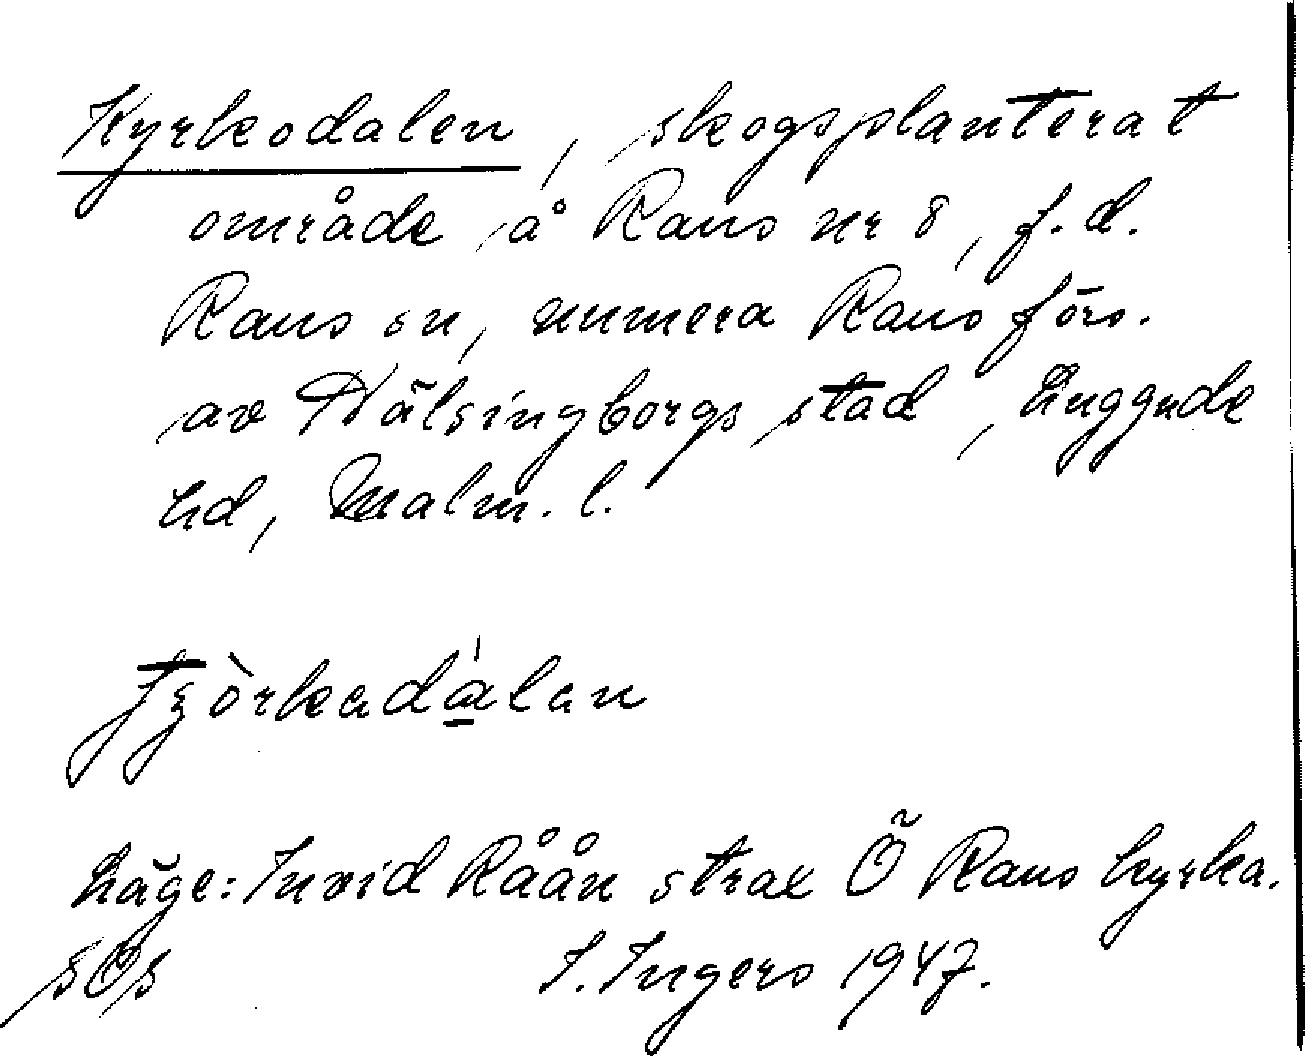 Kyrkodalen, skogsplanterat
område å Raus nr 8, f.d.
Raus sn, numera Raus förs.
av Hälsingborgs stad, Luggude
hd, Malm. l.
Läge: Invid Råån strax Ö Raus kyrka.
SOS I. Ingers 1947.